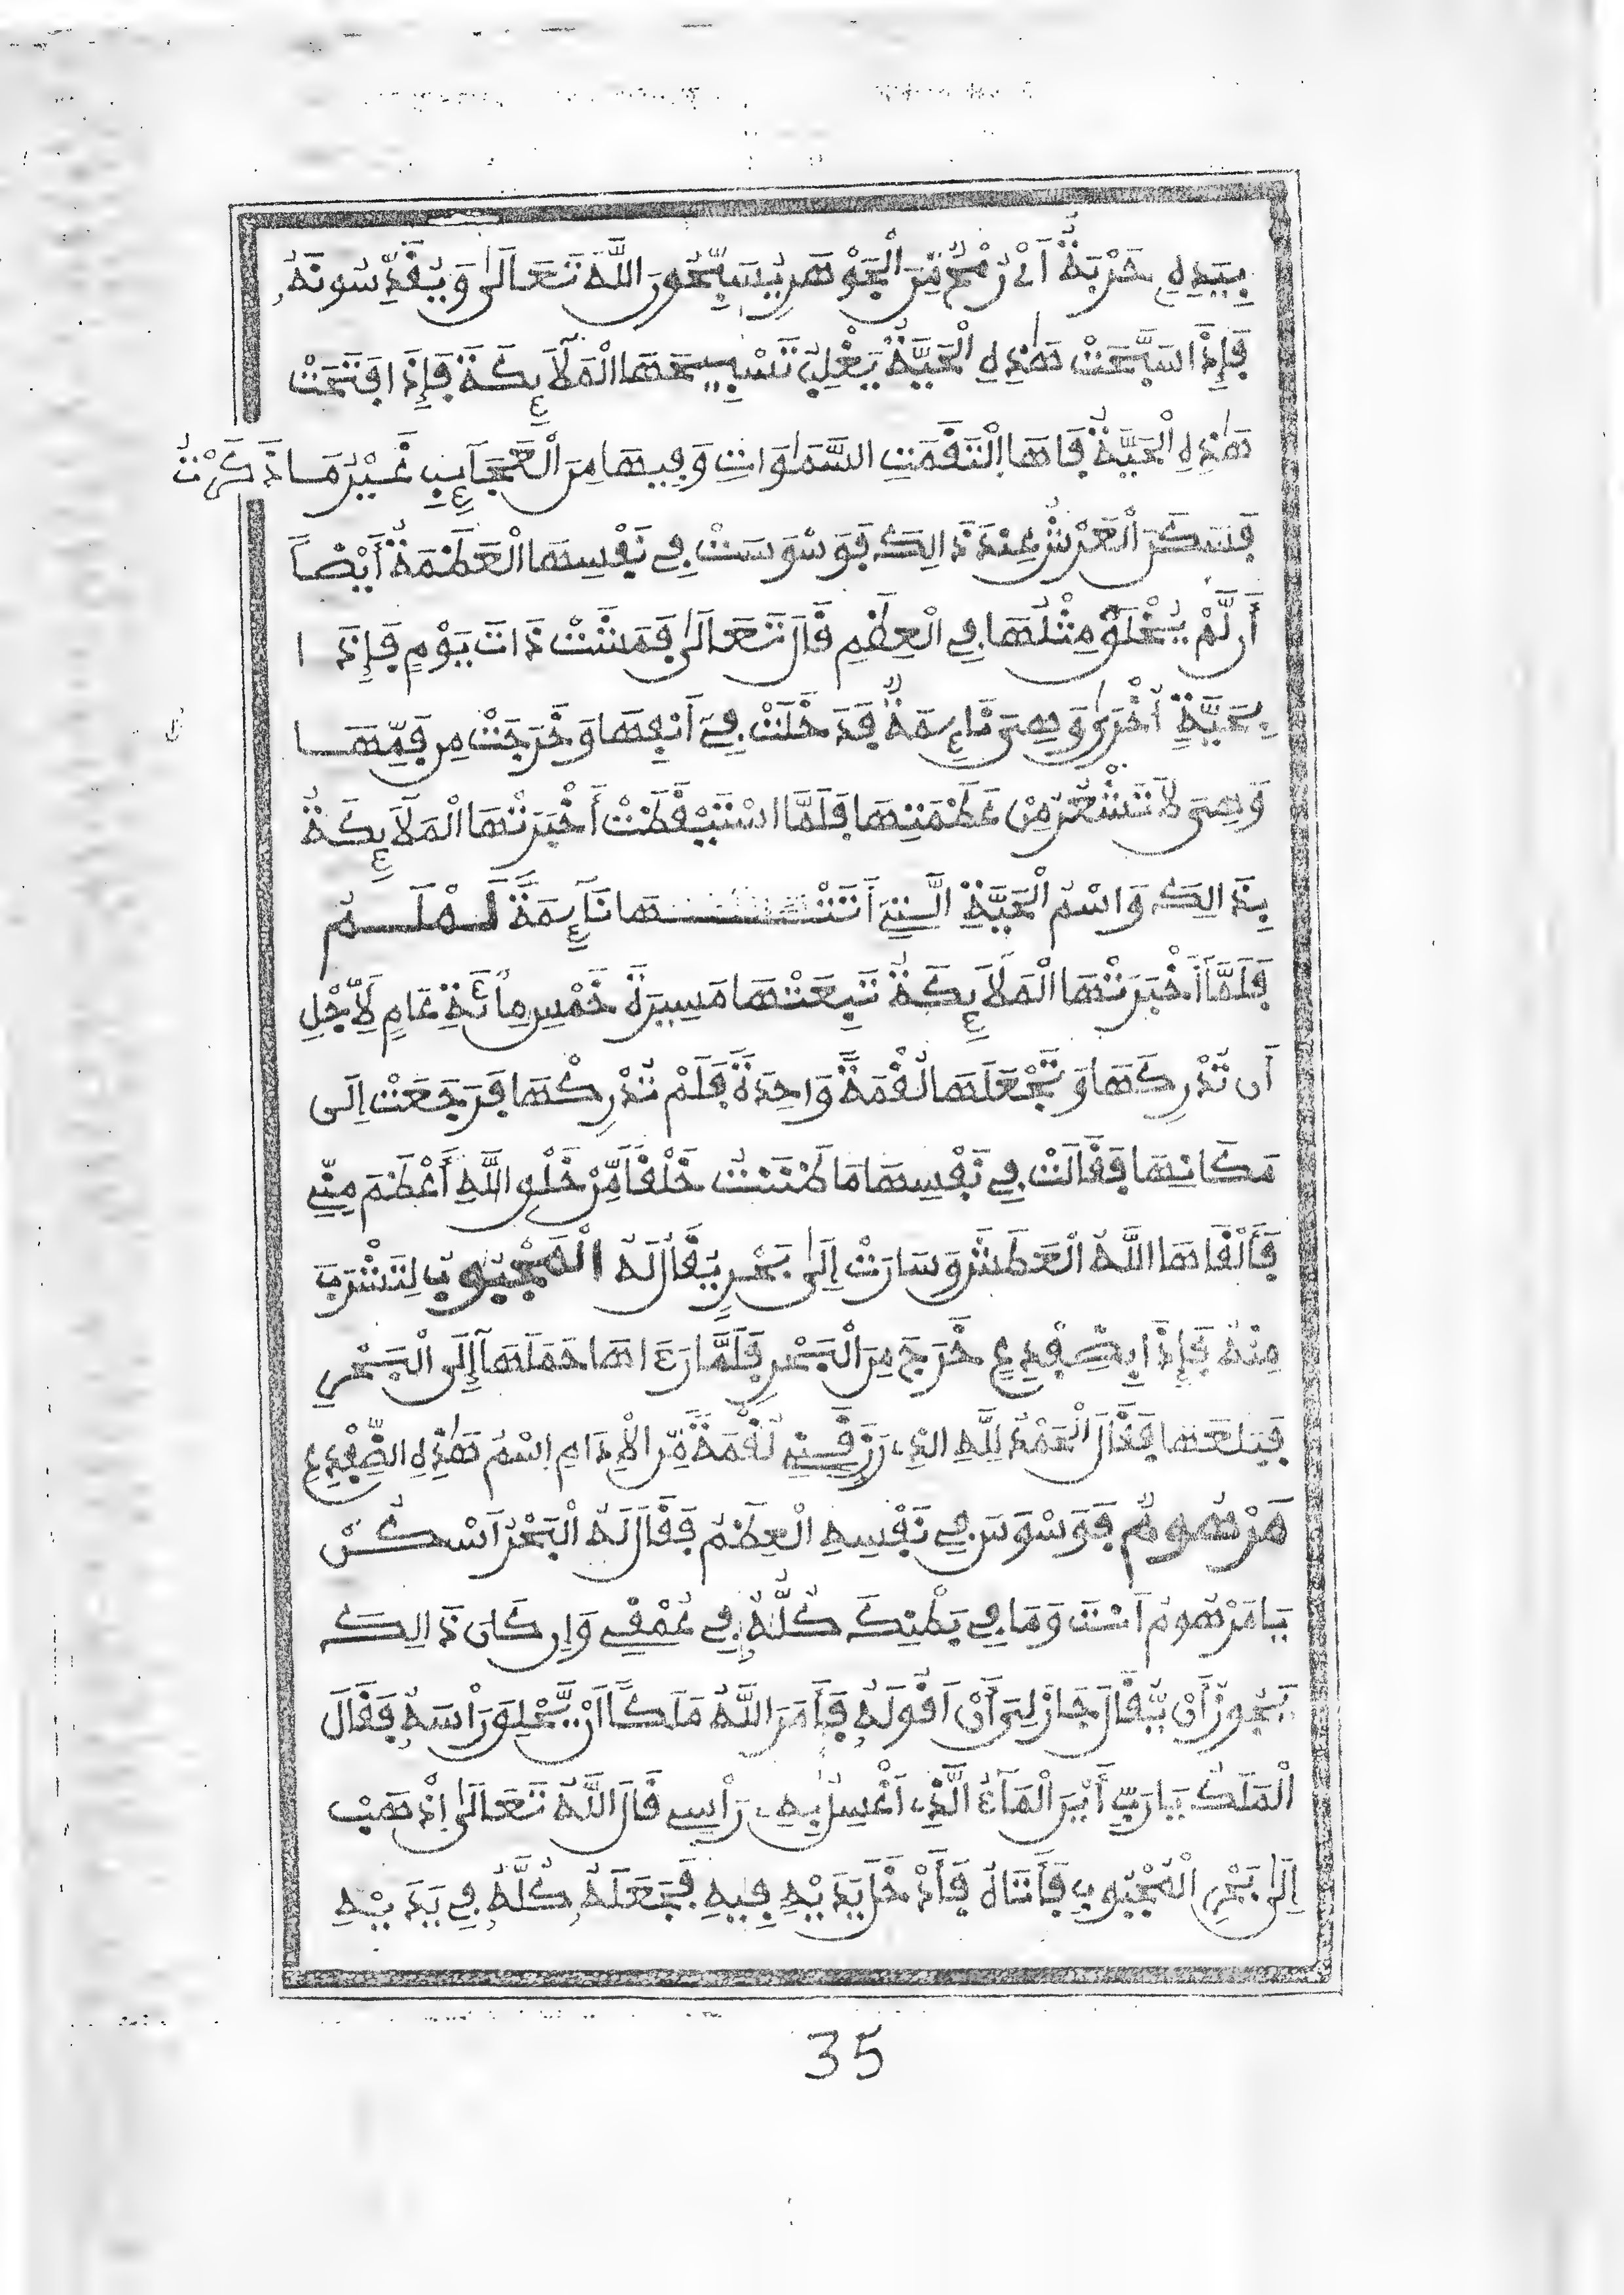 بِيَدِهِ حَرْبَةٌ اَىْ رُمْحٌ مِّنَ الْجَوْهَرِ يُسَبِّحُونَ اللَّهَ تَعَالَىٰ وَيُقَدِّسُونَهُ
فَإِذَا سَبَّحَتْ هَٰذِهِ الْحَيَّةُ يَغْلِبُ تَسْبِيحَهَا الْمَلَآئِكَةَ فَإِذَا افْتَحَتْ
هَٰذِهِ الْحَيَّةُ فَاهَا الْتَقَمَتِ السَّمَٰوَاتِ وَفِيهَا مِنَ الْعَجَآئِبِ غَيْرُ مَا ذَكَرْتُ
فَسَكَنَ الْعَرْشُ عِنْدَ ذَالِكَ فَوَسْوَسَتْ فِي نَفْسِهَا الْعَظَمَةُ أَيْضًا
أَن لَّمْ يُخْلَقْ مِثْلُهَا فِي الْعِظَمِ قَالَ تَعَالَىٰ فَمَشَتْ ذَاتَ يَوْمٍ فَإِذَا
بِحَيَّةٍ أُخْرَىٰ وَهِىَ نَائِمَةٌ قَدْ دَخَلَتْ فِي أَنْفِهَا وَخَرَجَتْ مِن فَمِّهَا
وَهِىَ لَا تَشْعُرُ مِنْ عَظَمَتِهَا فَلَمَّا اسْتَيْقَظَتْ أَخْبَرَتْهَا الْمَلَائِكَةُ
بِذَالِكَ وَاسْمُ الْحَيَّةِ الَّتِي أَتَتْهَا نَآئِمَةً لَمْلَمُ
فَلَمَّا أَخْبَرَتْهَا الْمَلَائِكَةُ تَبِعَتْهَا مَسِيرَةَ خَمْسِ مِائَةِ عَامٍ لِأَجْلِ
أَن تُدْرِكَهَا وَتَجْعَلَهَا لُقْمَةً وَاحِدَةً فَلَمْ تُدْرِكْهَا فَرَجَعَتْ اِلَى
مَكَانِهَا فَقَالَتْ فِي نَفْسِهَا مَا ظَنَنْتُ خَلْقًا مِّنْ خَلْقِ اللَّهِ أَعْظَمَ مِنِّي
فَأَلْقَاهَا اللَّهُ الْعَطَشَ وَسَارَتْ اِلَىٰ بَحْرٍ يُقَالُ لَهُ الْمَحْبُوبُ لِتَشْرَبَ
مِنْهُ فَإِذَا بِضِفْدِعٍ خَرَجَ مِنَ الْبَحْرِ فَلَمَّا رَءَاهَا حَمَلَهَآ إِلَى الْبَحْرِ
فَبَلَعَهَا فَقَالَ الْحَمْدُ لِلَّهِ الذِي رَزَقَنِي لُقْمَةً مِّنَ الْإِدَامِ اِسْمُ هَٰذِهِ الضِّفْدِعِ
هَرْهُومُ فَوَسْوَسَ فِي نَفْسِهِ الْعِظَمُ فَقَالَ لَهُ الْبَحْرُ اَسْكُنْ
يَا هَرْهُومُ اَنْتَ وَمَا فِي بَطْنِكَ كُلُّهُ فِي عُمْقِي وَإِن كَانَ ذَالِكَ
يَجُوزُ أَنْ يُّقَالَ جَازَ لِىَ أَنْ اَقُولَهُ فَأَمَرَ اللَّهُ مَلَكًا اَنْ يَّحْلِقَ رَأْسَهُ فَقَالَ
الْمَلَكُ يَا رَبِّ أَيْنَ الْمَآءُ الَّذِي اَغْسِلُ بِهِ رَأْسِي قَالَ اللَّهُ تَعَالَىٰ اِذْهَبْ
اِلَىٰ بَحْرِ الْمَحْبُوبِ فَأَتَاهُ فَأَدْخَلَ يَدَيْهِ فِيهِ فَجَعَلَهُ كُلَّهُ فِي يَدَيْهِ
35